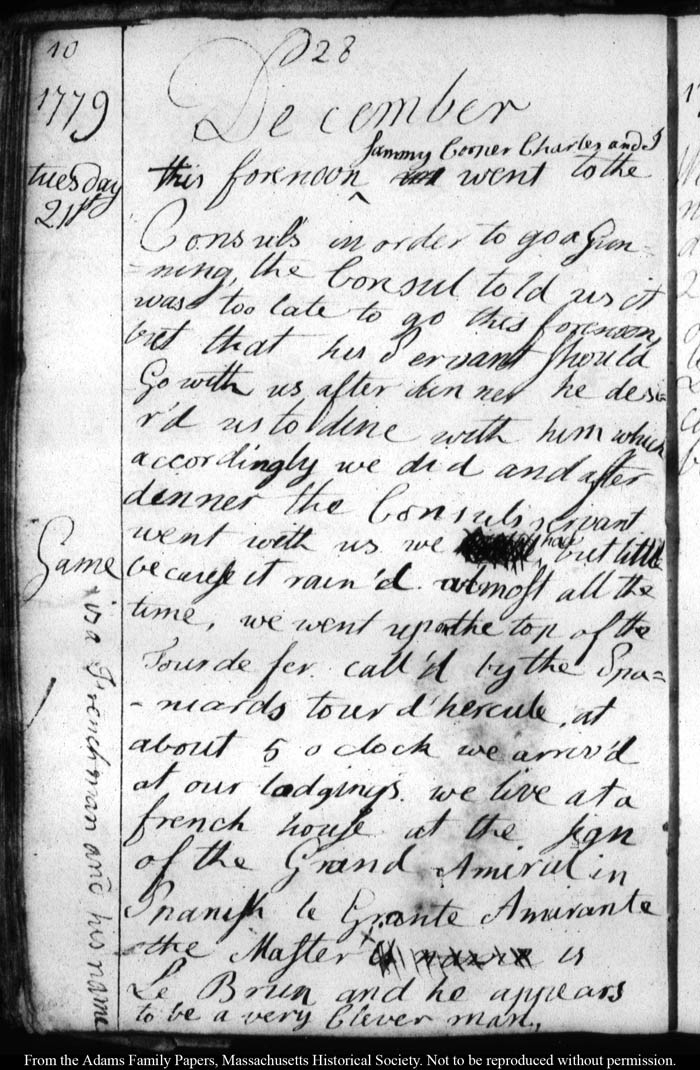 10
28
1779
December
tuesday
21st
Sammy Cooper Charles and I
this forenoon ^ went to the
Consuls in order to go a Gun-
-ning, the Consul told us it
was too late to go this forenoon
but that his Servant should
Go with us after dinner he desi-
r'd us to dine with him which
accordingly we did and after
dinner the Consuls servant
went with us we had but little
Game because it rain'd almost all the
time, we went up on the top of the
Tour de fer. call'd by the Spa=
-niards tour d'hercule, at
about 5 o clock we arriv'd
at our lodgings. we live at a
french house at the sign
of the Grand Amiral in
Spanish le Grante Amirante
the Master x is
Le Brun and he appears
to be a very Clever man.,
x is a Frenchman and his name
From the Adams Family Papers, Massachusetts Historical Society. Not to be reproduced without permission.